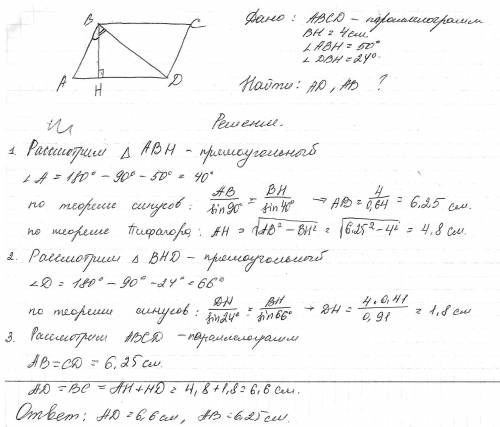 B C
A H D
Дано: ABCD - параллелограмм
BH = 4 см.
∠ABH = 50°
∠DBH = 24°.
Найти: AD, AB ?
Решение.
1. Рассмотрим △ ABH - прямоугольный
∠A = 180° - 90° - 50° = 40°
по теореме синусов: AB/sin90° = BH/sin40° → AB = 4/0,64 = 6,25 см.
по теореме Пифагора: AH = √AB² - BH² = √6,25² - 4² = 4,8 см.
2. Рассмотрим △ BHD - прямоугольный
∠D = 180° - 90° - 24° = 66°
по теореме синусов: DH/sin24° = BH/sin66° → DH = 4·0,41/0,91 = 1,8 см
3. Рассмотрим ABCD - параллелограмм
AB = CD = 6,25 см.
AD = BC = AH + HD = 4,8 + 1,8 = 6,6 см.
Ответ: AD = 6,6 см, AB = 6,25 см.